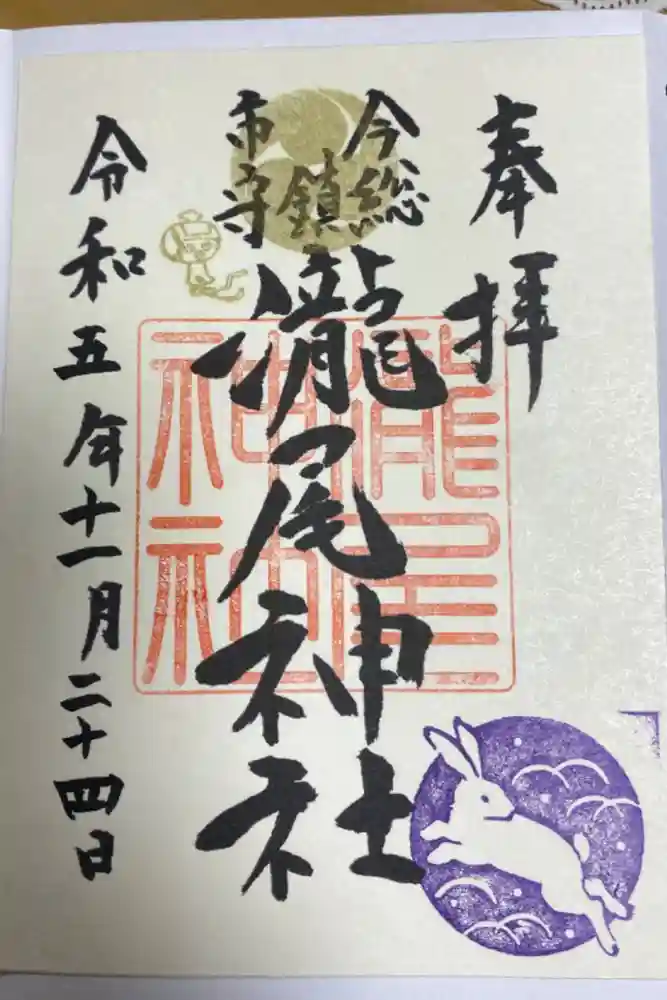 奉拝
今市総鎮守
瀧尾神社
瀧尾神社
令和五年十一月二十四日